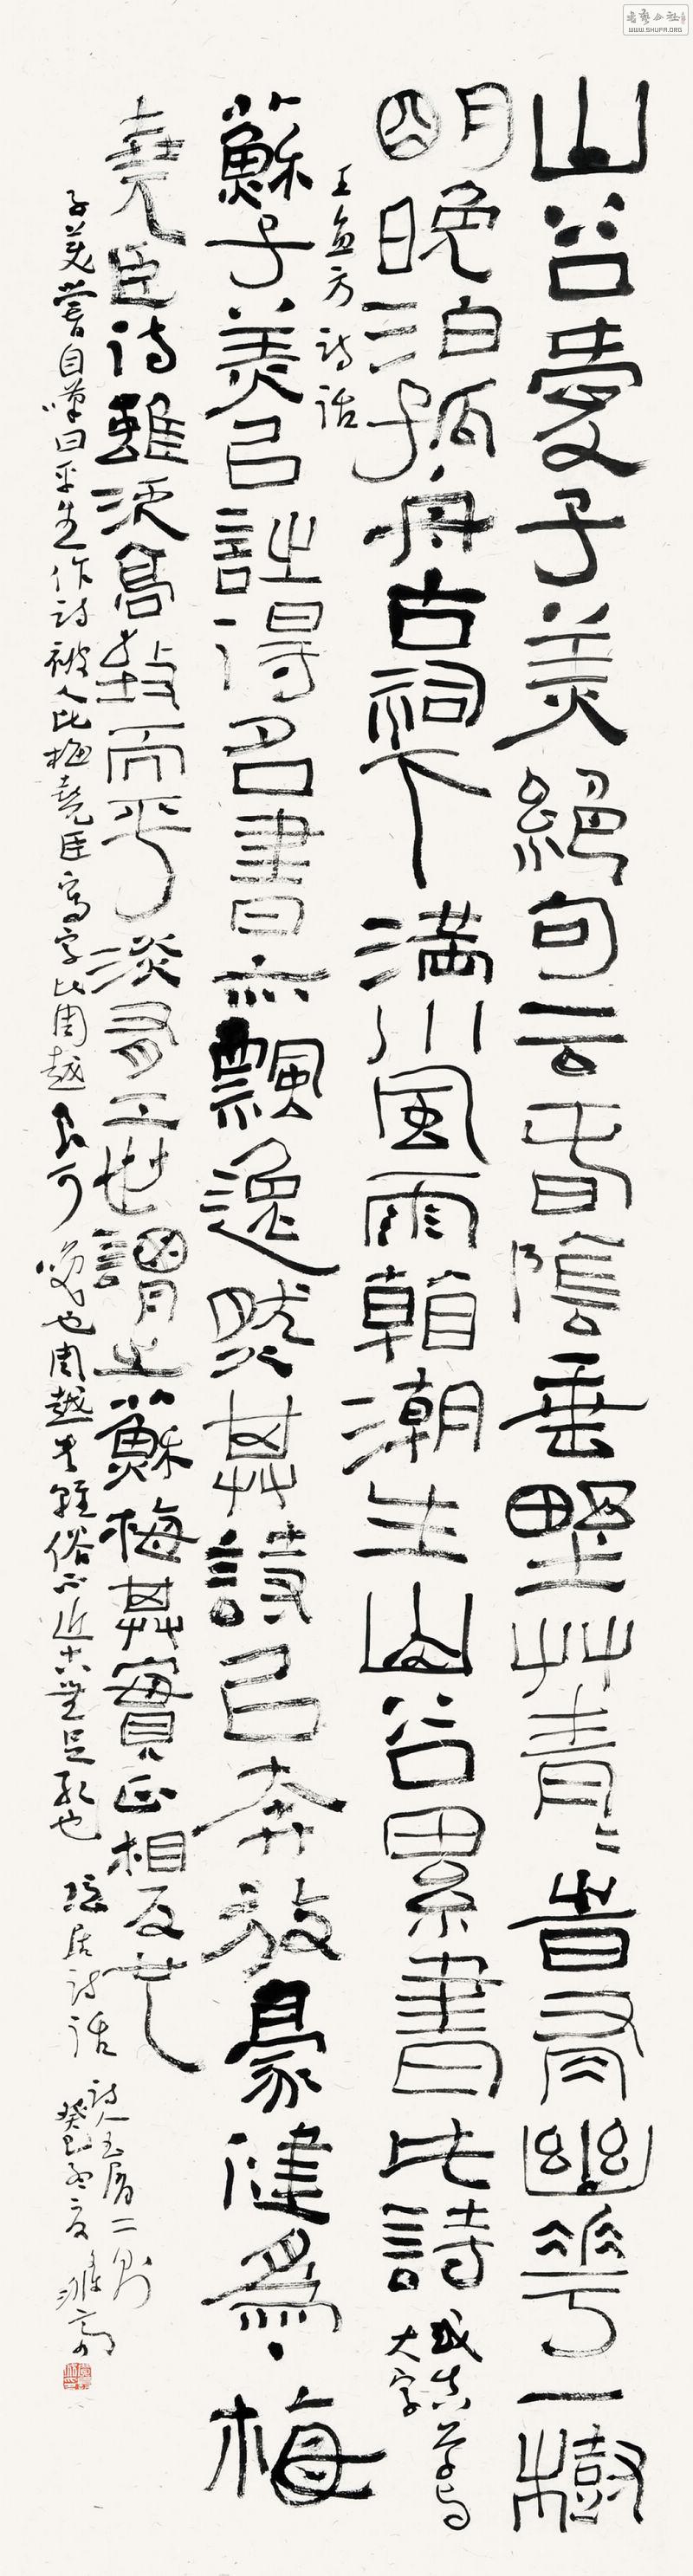 山谷愛子美絕句云春陰垂野艸青〻時有幽花一樹
明晚泊孤舟古祠下滿川風雨看潮生山谷累書此詩
或真草與
大字
王直方詩話
蘇子美以詩得名書亦飄逸然其詩以奔放豪健為〻梅
堯臣詩雖泛高致而平淡有工世謂之蘇梅其實正相反也
子美嘗自嘆曰平生作詩被人比梅堯臣寫字比周越良可
笑也周越書輕俗不近古無足取也
隱居詩話
詩人玉屑二則
癸巳孟夏
书艺公社
WWW.SHUFA.ORG